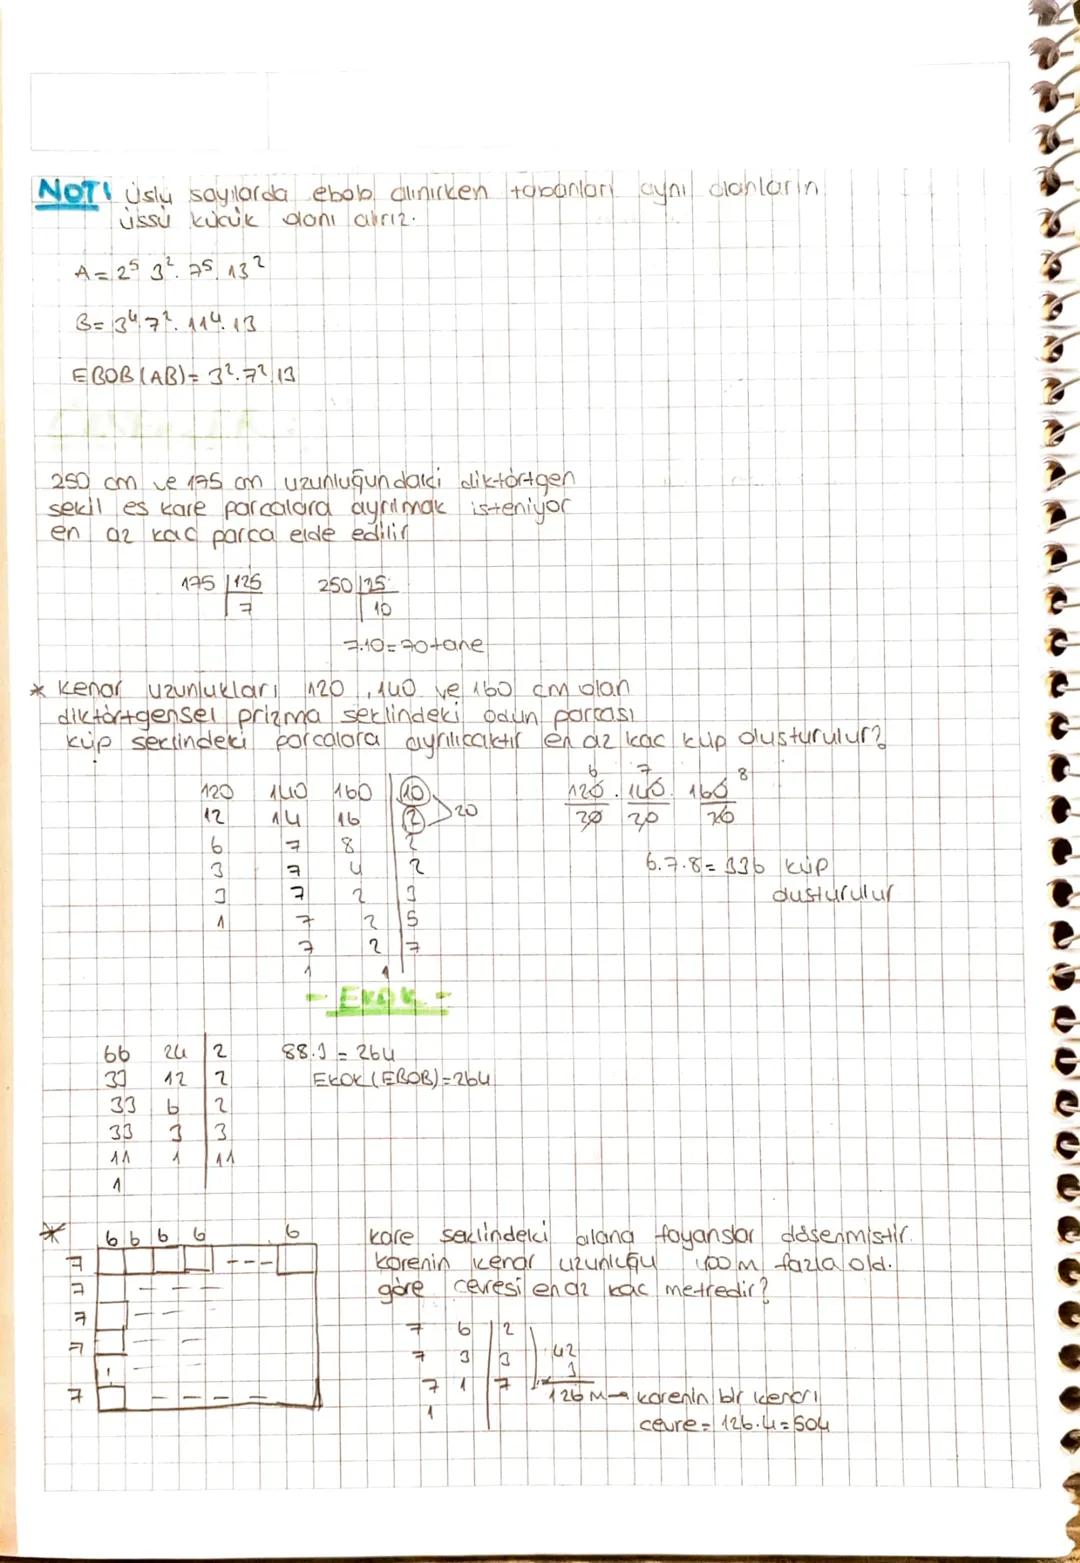 NOT! üslü sayılarda ebob alınırken tabanları aynı olanların
üssü küçük olanı alırız.
A = 2⁵ 3². 7⁵. 13²
B = 3⁴ 7². 11⁴. 13
EBOB (AB) = 3². 7² 13
250 cm ve 175 cm uzunluğundaki diktörtgen
sekil es kare parcalara ayrılmak isteniyor
en az kaç parça elde edilir
175 | 125 250 | 25
7 10
7.10 = 70 tane
* Kenar uzunlukları 120, 140 ve 160 cm olan
diktörtgensel prizma seklindeki odun parcası
küp seklindeki parcalara ayrılıcaktır en az kac küp olusturulur?
120 140 160 | 10 6 7 8
12 14 16 | 2 > 20 120/20 . 140/20 . 160/20
6 7 8 | 2
3 7 4 | 2 6.7.8 = 336 küp
3 7 2 | 3 olusturulur
1 7 2 | 5
7 2 | 7
1 1
- EKOK -
66 24 | 2 88.3 = 264
33 12 | 2 EKOK (EBOB) = 264
33 6 | 2
33 3 | 3
11 1 | 11
1
* 6 6 6 6 6 kare seklindeki alana fayanslar dösenmistir.
7 karenin kenar uzunluğu 100 m fazla old.
7 göre cevresi en az kac metredir?
7 7 6 | 2
7 7 3 | 3 42
7 7 1 | 7 3
1 126 m → karenin bir kenarı
cevre = 126.4 = 504